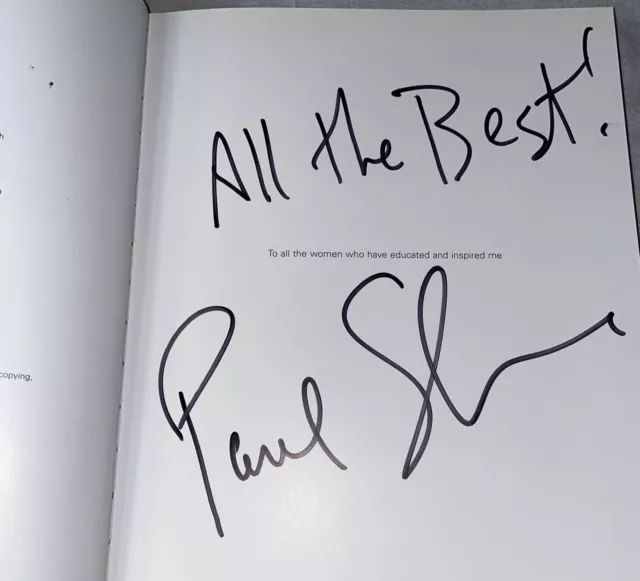 All the Best!
To all the women who have educated and inspired me
Paul
copying,